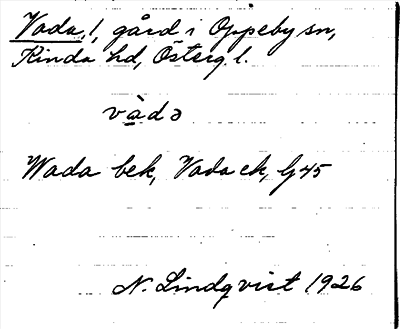 Vada, 1, gård i Oppeby sn,
Kinda hd, Österg. l.
vàdə
Wada bek, Vada ek, Gj 45
N. Lindqvist 1926